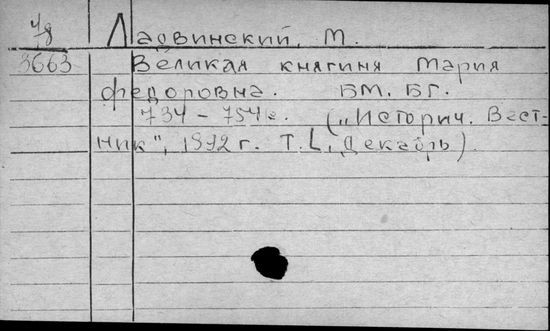 7/8 Ладвинский, М.
3663 Великая княгиня Мария
федоровна. БМ. БГ.
734-754 с. („Историч. Вест-
ник", 1892 г. Т. L, Декабрь).